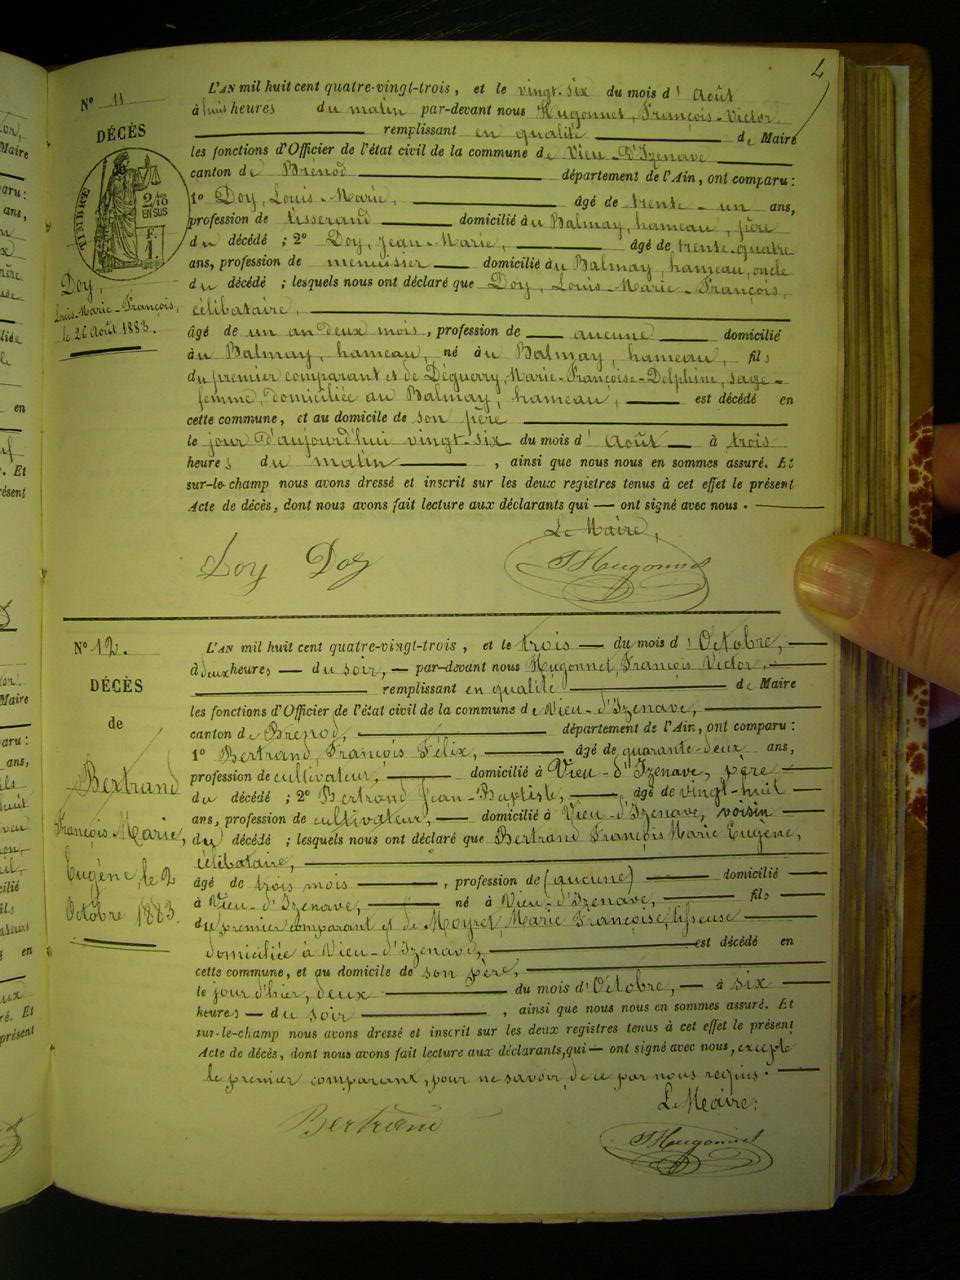 4
N° 11
DÉCÈS
TIMBRE
2/10
EN SUS
F.
1.
Doy,
Louis-Marie-François,
le 26 Août 1883.
L'AN mil huit cent quatre-vingt-trois, et le vingt-six du mois d'Août
à huit heures du matin par-devant nous Hugonnet, François-Victor
remplissant en qualité de Maire
les fonctions d'Officier de l'état civil de la commune de Vieu-d'Izenave
canton de Brénod département de l'Ain, ont comparu :
1° Doy, Louis-Marie, âgé de trente-un ans,
profession de tisserand domicilié au Balmay, hameau, père
du décédé ; 2° Doy, Jean-Marie, âgé de trente-quatre
ans, profession de menuisier domicilié au Balmay, hameau, oncle
du décédé ; lesquels nous ont déclaré que Doy, Louis-Marie-François,
célibataire,
âgé de un an deux mois, profession de aucune domicilié
au Balmay, hameau, né au Balmay, hameau, fils
du premier comparant et de Déguerry, Marie-Françoise-Delphine, sage-
femme, domiciliée au Balmay, hameau, est décédé en
cette commune, et au domicile de son père
le jour d'aujourd'hui vingt-six du mois d'Août à trois
heures du matin, ainsi que nous nous en sommes assuré. Et
sur-le-champ nous avons dressé et inscrit sur les deux registres tenus à cet effet le présent
Acte de décès, dont nous avons fait lecture aux déclarants qui — ont signé avec nous.
Le Maire,
Doy Doy F Hugonnet
N° 12.
DÉCÈS
de
Bertrand
François Marie,
Eugène, le 2
Octobre 1883.
L'AN mil huit cent quatre-vingt-trois, et le trois — du mois d'Octobre, —
à deux heures — du soir, — par-devant nous Hugonnet, François Victor, —
remplissant en qualité de Maire
les fonctions d'Officier de l'état civil de la commune de Vieu-d'Izenave,
canton de Brénod, département de l'Ain, ont comparu :
1° Bertrand, François Félix, âgé de quarante-deux ans,
profession de cultivateur, domicilié à Vieu-d'Izenave, père
du décédé ; 2° Bertrand Jean-Baptiste, âgé de vingt-huit
ans, profession de cultivateur, domicilié à Vieu-d'Izenave, voisin
du décédé ; lesquels nous ont déclaré que Bertrand François Marie Eugène,
célibataire,
âgé de trois mois, profession de (aucune) domicilié
à Vieu-d'Izenave, né à Vieu-d'Izenave, fils
du premier comparant et de Marie Françoise, tisseuse
domiciliée à Vieu-d'Izenave, est décédé en
cette commune, et au domicile de son père,
le jour d'hier, deux du mois d'Octobre, — à six
heures — du soir, ainsi que nous nous en sommes assuré. Et
sur-le-champ nous avons dressé et inscrit sur les deux registres tenus à cet effet le présent
Acte de décès, dont nous avons fait lecture aux déclarants, qui — ont signé avec nous, excepté
le premier comparant, pour ne savoir, de ce par nous requis.
Le Maire:
Bertrand F Hugonnet